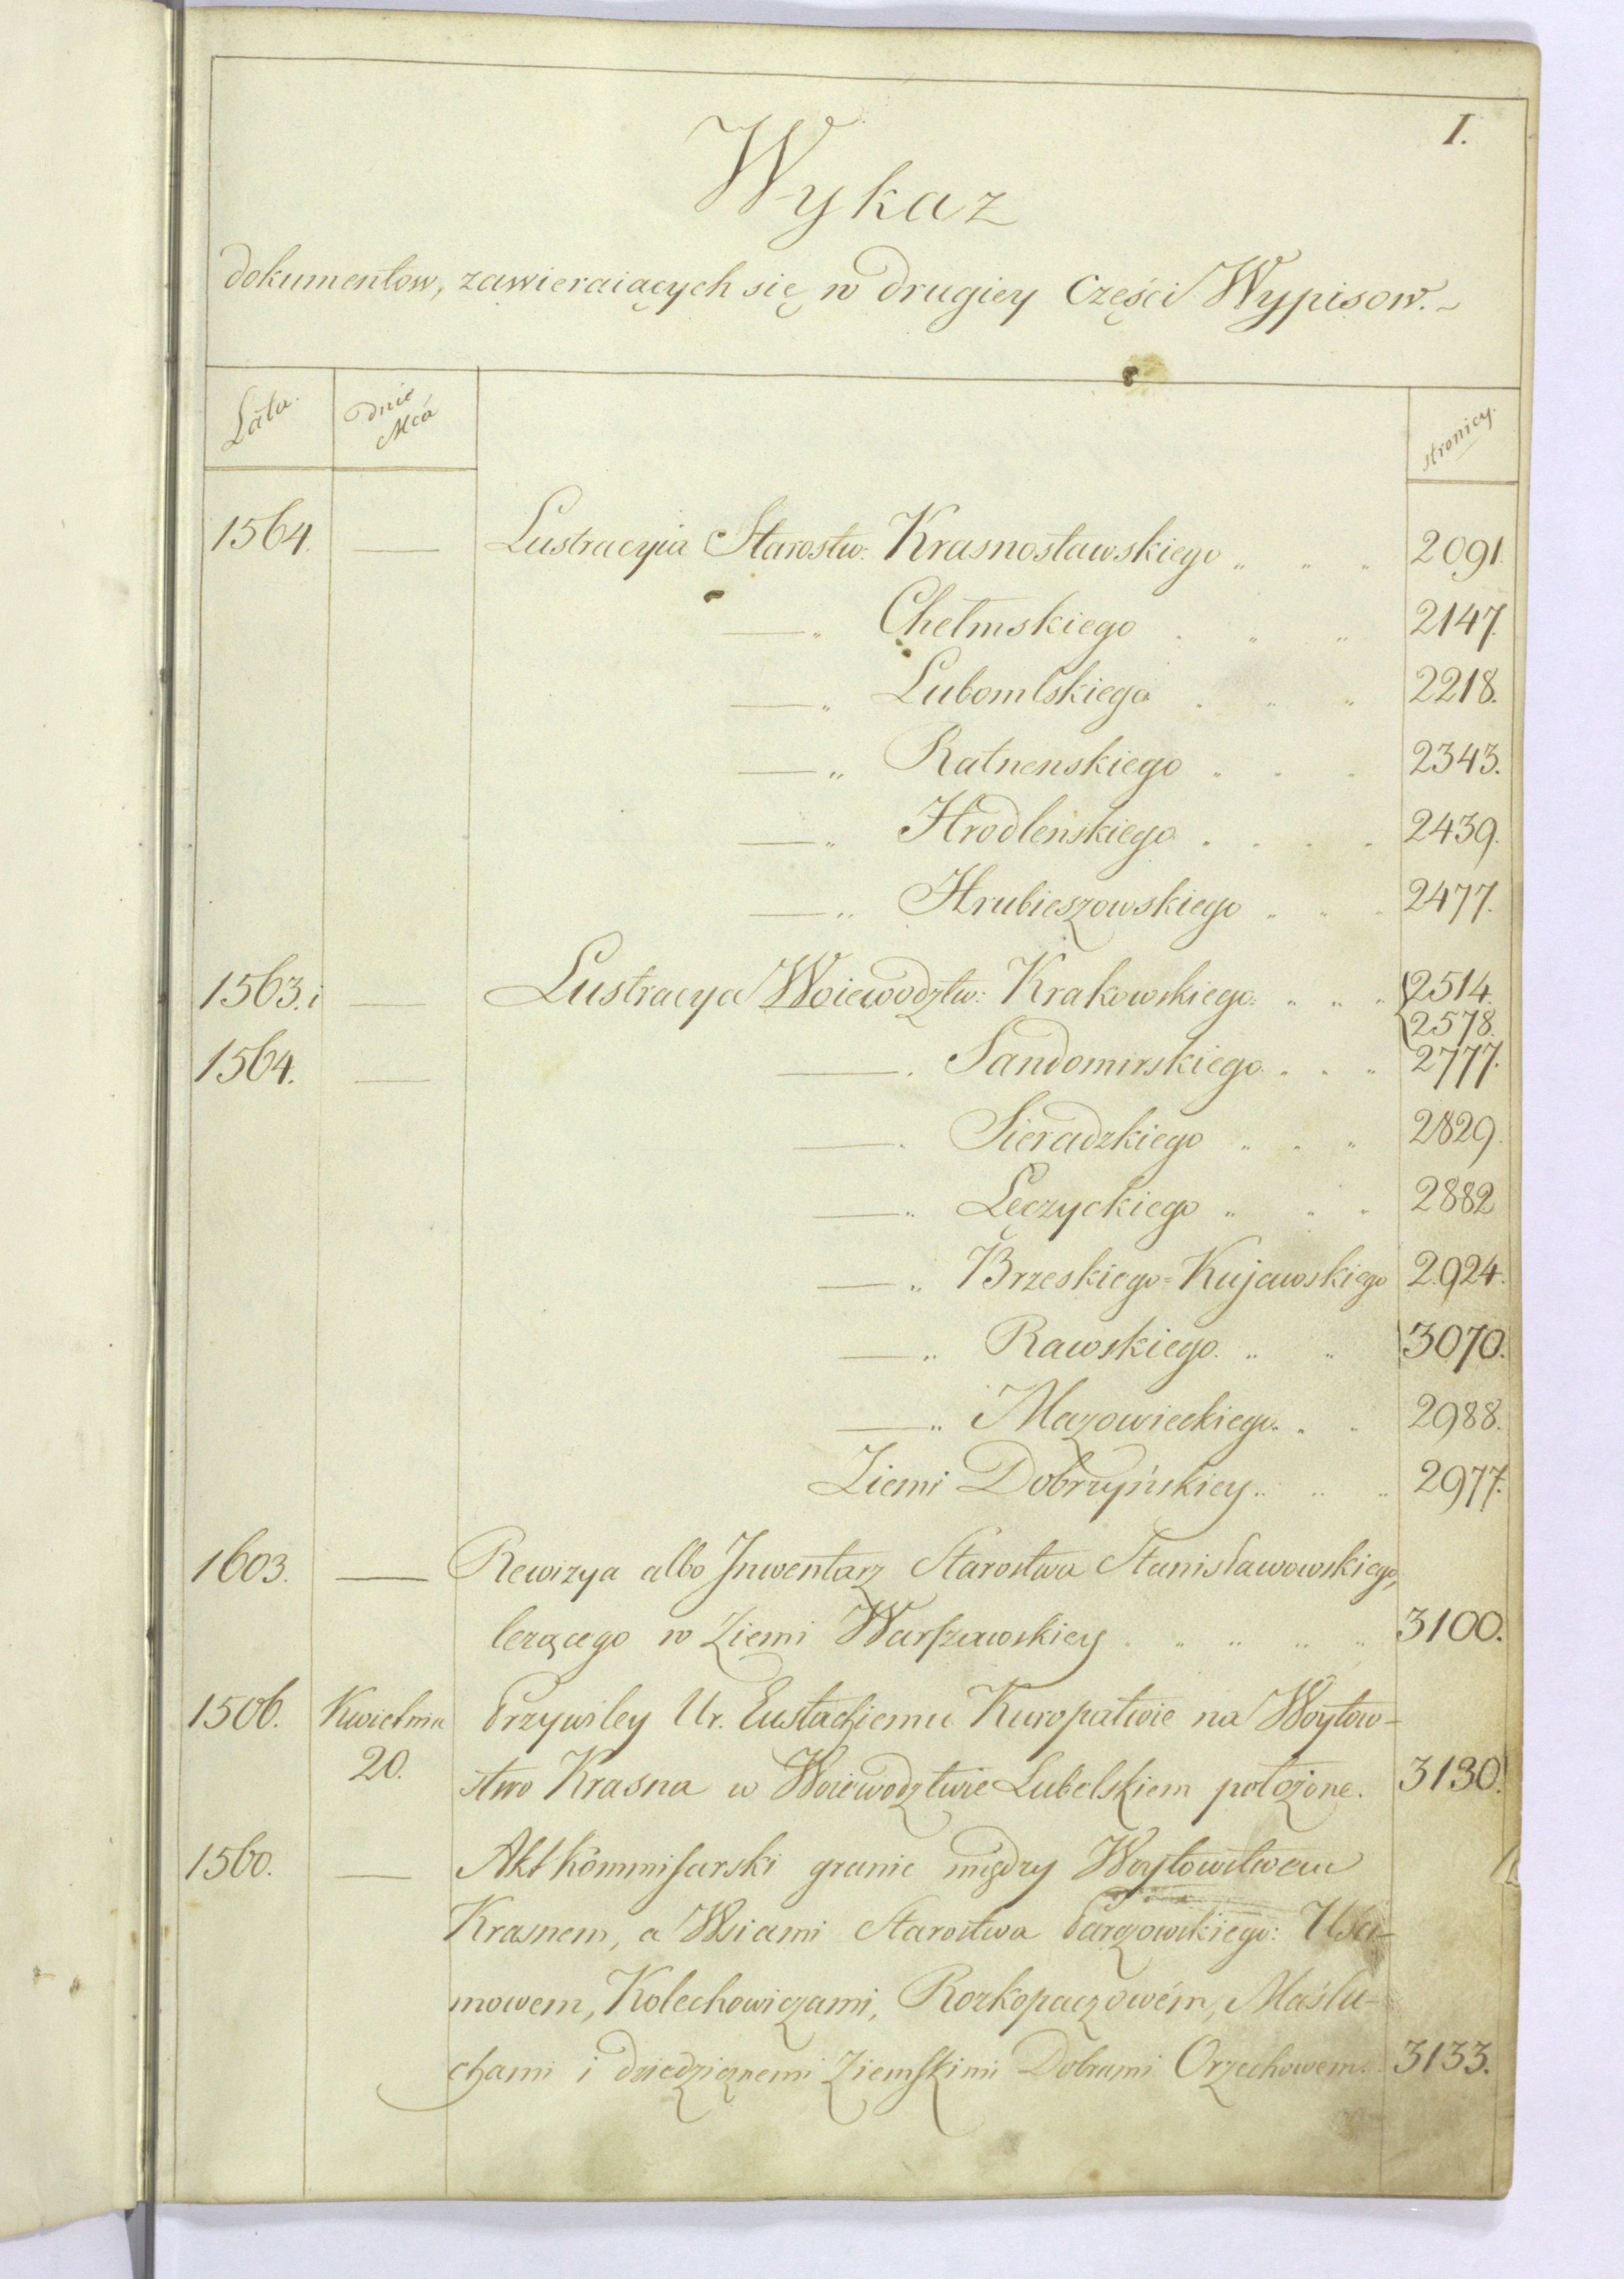 I.
Wykaz
dokumentow, zawieraiących się w drugiey Części Wypisow.
Lata. dnie Mca stronicy.
1564. — Lustracyia Starostw: Krasnostawskiego „ „ „ 2091.
—„ Chełmskiego . „ „ 2147.
—„ Lubomlskiego . „ „ 2218.
—„ Ratnenskiego „ . . 2343.
—„ Hrodlenskiego . . . . 2439.
—„ Hrubieszowskiego „ „ „ 2477.
1563. i — Lustracya Woiewodztw: Krakowskiego: „ „ „ 2514.
2578.
1564. — —. Sandomirskiego . . „ 2777.
—. Sieradzkiego „ . „ 2829.
—„ Łęczyckiego „ „ „ 2882
—„ Brzeskiego=Kujawskiego 2924.
—„ Rawskiego. „ „ 3070.
—„ Mazowieckiego. . . 2988.
Ziemi Dobrzyńskiey „ „ „ 2977.
1603. — Rewizya albo Inwentarz Starostwa Stanisławowskiego,
lezącego w Ziemi Warszawskiey . „ „ „ „ 3100.
1506. Kwietnia Przywiley Ur. Eustachiemu Kuropatwie na Woytow-
20. stwo Krasna w Woiewodztwie Lubelskiem położone. 3130.
1560. — Akt kommissarski granic między Woytowstwem
Krasnem, a Wsiami Starostwa Parczowskiego: Usci-
mowem, Kolechowiczami, Rozkopaczowém, Maślu-
chami i dziedzicznemi Ziemskimi Dobrami Orzechowem. 3133.